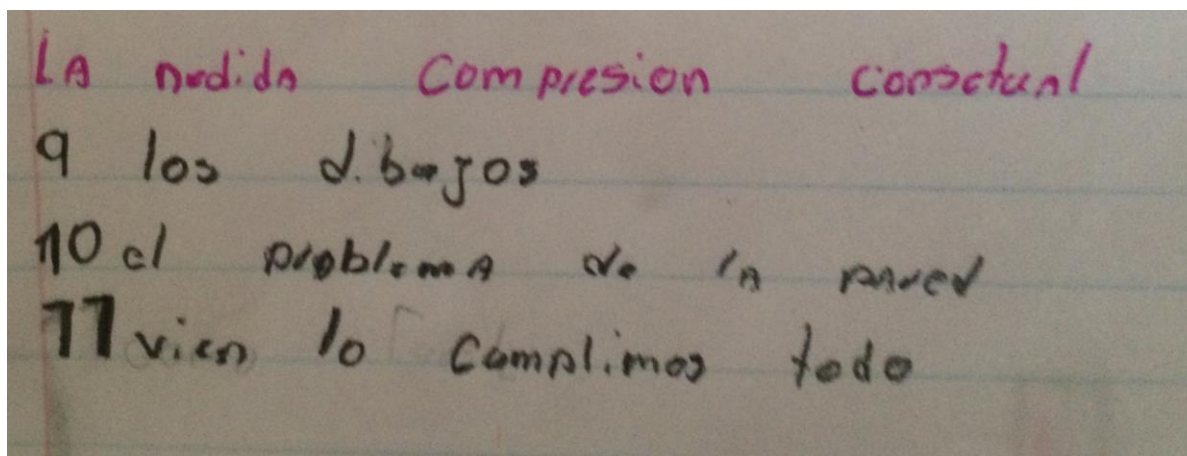 LA medida Compresion consetual
9 los dibajos
10 el problema de la pared
11 vien lo Complimos todo